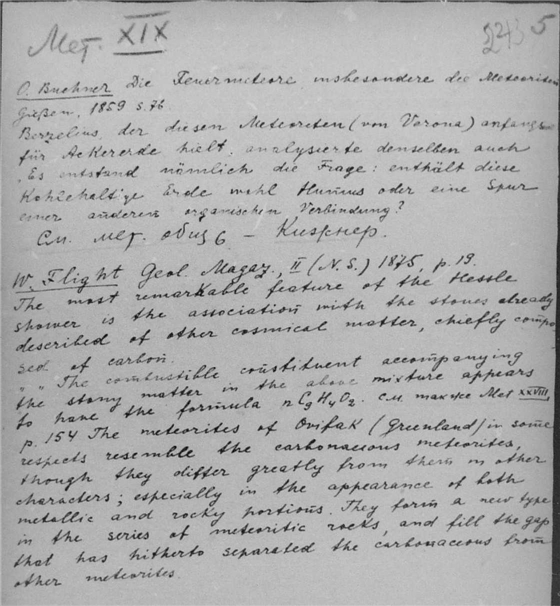 Мет. XIX
2435
O. Buchner Die Feuermeteore insbesondere die Meteoriten
Gießen, 1859 S. 76.
Berzelius, der diesen Meteoriten (von Verona) anfangs
für Ackererde hielt, analysierte denselben auch
„Es entstand nämlich die Frage: enthält diese
Kohlehaltige Erde wohl Humus oder eine Spur
einer anderen organischen Verbindung?
См. мет. общ 6 –
W. Flight Geol. Magaz., II (N. S.) 1875, p. 19.
The most remarkable feature of the Hessle
shower is the association with the stones already
described of other cosmical matter, chiefly compo
sed of carbon.
„ „ The combustible constituent accompanying
the stony matter in the above mixture appears
to have the formula nC9H4O2. см. также Мет XXVIII
p. 154 The meteorites of Ovifak (Greenland) in some
respects resemble the carbonaceous meteorites,
though they differ greatly from them in other
characters; especially in the appearance of both
metallic and rocky portions. They form a new type
in the series of meteoritic rocks, and fill the gap
that has hitherto separated the carbonaceous from
other meteorites.